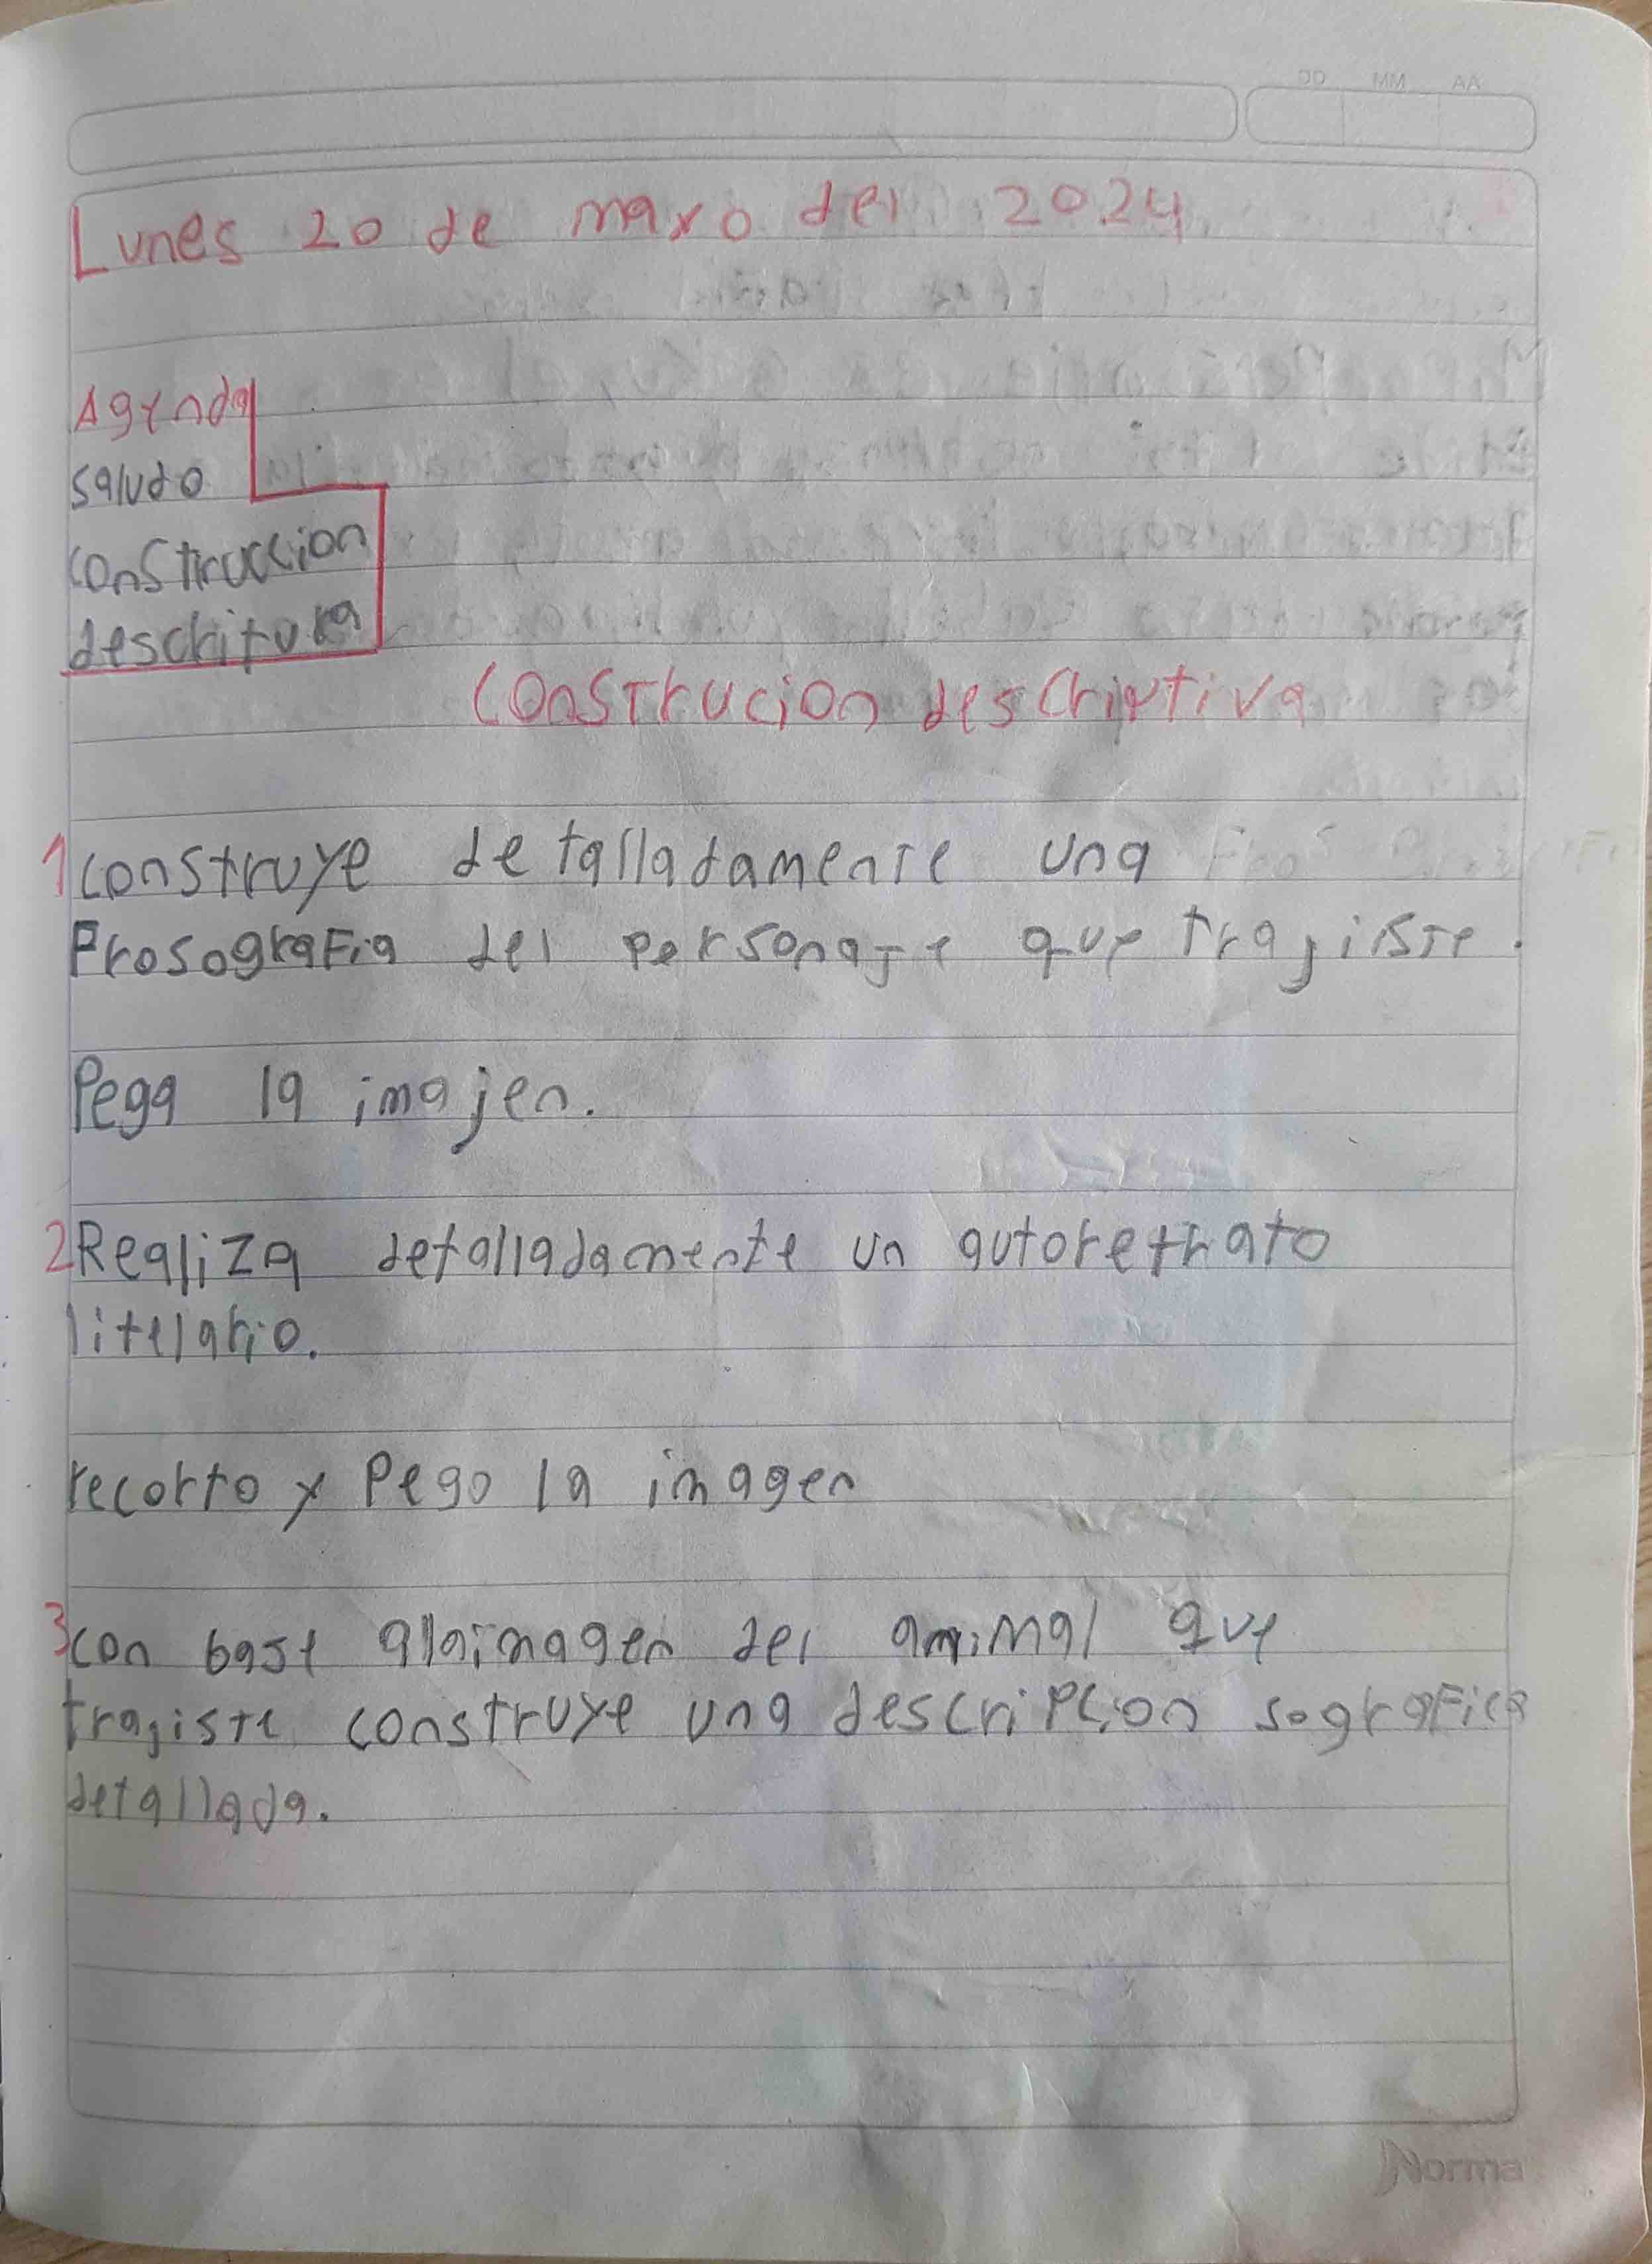 DD MM AA
Lunes 20 de mayo del 2024
Agenda
saludo
construccion
descritura
Construcion descriptiva
1 construye detalladamente una
Prosografia del personaje que trajiste.
Pega la imajen.
2 Realiza detalladamente un autoretrato
litelario.
recorto y Pego la imagen
3 con base alaimagen del animal que
trajiste construye una descripcion sografica
detallada.
Norma